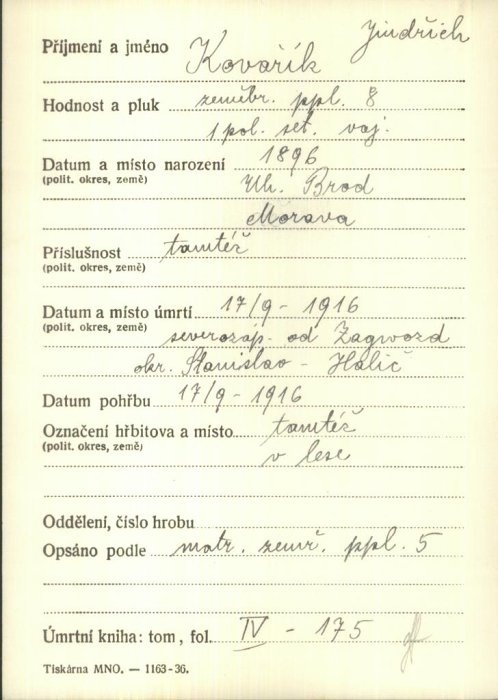 Jindřich
Příjmení a jméno Kovařík
Hodnost a pluk zeměbr. ppl. 8
1 pol. set. voj.
Datum a místo narození 1896
(polit. okres, země) Uh. Brod
Morava
Příslušnost tamtéž
(polit. okres, země)
Datum a místo úmrtí 17/9 - 1916
(polit. okres, země) severozáp. od Zagwozd
okr. Stanislao - Halič
Datum pohřbu 17/9 - 1916
Označení hřbitova a místo tamtéž
(polit. okres, země) v lese
Oddělení, číslo hrobu
Opsáno podle matr. zemř. ppl. 5
Úmrtní kniha: tom, fol. IV - 175
Tiskárna MNO. — 1163-36.